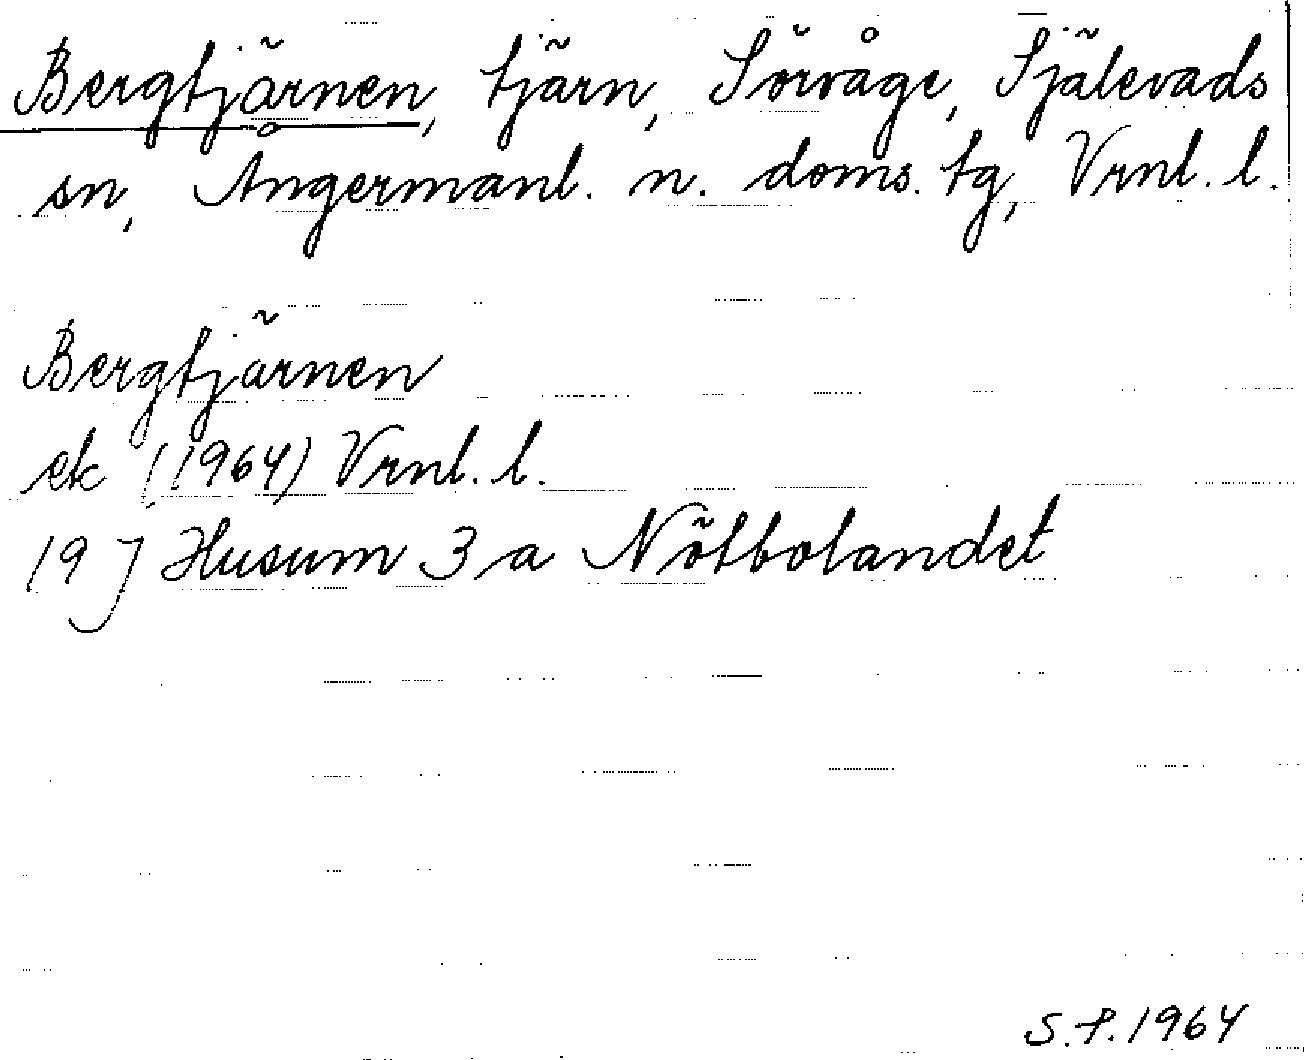 Bergtjärnen, tjärn, Sörvåge, Själevads
sn, Ångermanl. n. doms. tg, Vrnl. l.
Bergtjärnen
ek (1964) Vrnl. l.
19 J Husum 3 a Nötbolandet
S.P. 1964